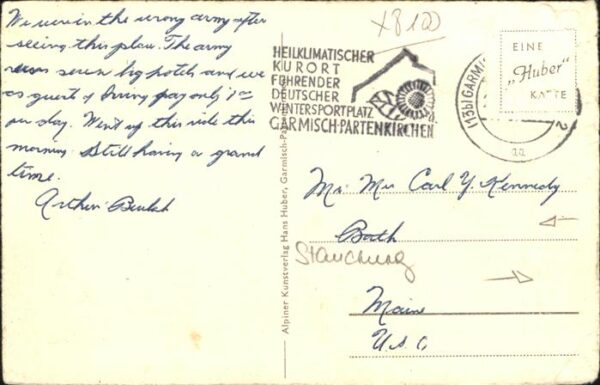 We were in the wrong army after
seeing this place. The army
runs seven big hotels and we
as guests of Irving pay only 1 00
per day. Went up this ride this
morning. Still having a grand
time.
Arthur Beulah
X8100
HEILKLIMATISCHER
KURORT
FÜHRENDER
DEUTSCHER
WINTERSPORTPLATZ
GARMISCH-PARTENKIRCHEN
(13b) GARMI
aa
2
EINE
„Huber"
KARTE
Alpiner Kunstverlag Hans Huber, Garmisch-Parten
Mr. Mrs Carl Y. Kennedy
Bath
Maine
U.S.A